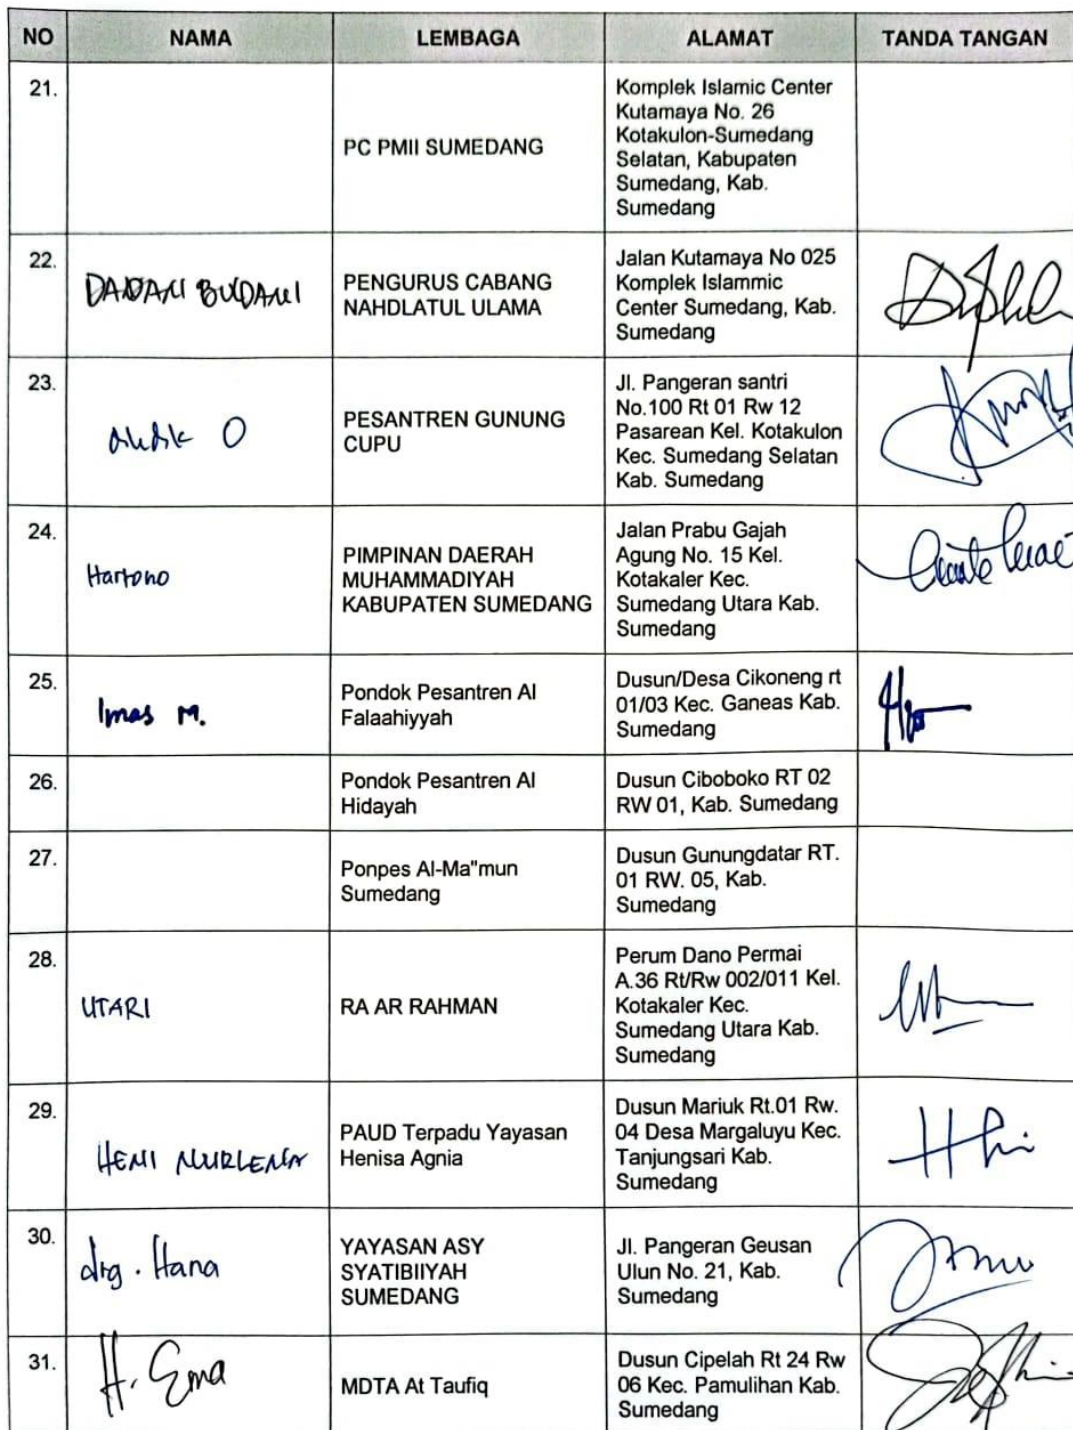 NO NAMA LEMBAGA ALAMAT TANDA TANGAN
21.
PC PMII SUMEDANG
Komplek Islamic Center
Kutamaya No. 26
Kotakulon-Sumedang
Selatan, Kabupaten
Sumedang, Kab.
Sumedang
22.
DADAN BUDANI
PENGURUS CABANG
NAHDLATUL ULAMA
Jalan Kutamaya No 025
Komplek Islammic
Center Sumedang, Kab.
Sumedang
23.
didik O
PESANTREN GUNUNG
CUPU
Jl. Pangeran santri
No.100 Rt 01 Rw 12
Pasarean Kel. Kotakulon
Kec. Sumedang Selatan
Kab. Sumedang
24.
Hartono
PIMPINAN DAERAH
MUHAMMADIYAH
KABUPATEN SUMEDANG
Jalan Prabu Gajah
Agung No. 15 Kel.
Kotakaler Kec.
Sumedang Utara Kab.
Sumedang
25.
Imas M.
Pondok Pesantren Al
Falaahiyyah
Dusun/Desa Cikoneng rt
01/03 Kec. Ganeas Kab.
Sumedang
26.
Pondok Pesantren Al
Hidayah
Dusun Ciboboko RT 02
RW 01, Kab. Sumedang
27.
Ponpes Al-Ma"mun
Sumedang
Dusun Gunungdatar RT.
01 RW. 05, Kab.
Sumedang
28.
UTARI
RA AR RAHMAN
Perum Dano Permai
A.36 Rt/Rw 002/011 Kel.
Kotakaler Kec.
Sumedang Utara Kab.
Sumedang
29.
HENI NURLENA
PAUD Terpadu Yayasan
Henisa Agnia
Dusun Mariuk Rt.01 Rw.
04 Desa Margaluyu Kec.
Tanjungsari Kab.
Sumedang
30.
drg. Hana
YAYASAN ASY
SYATIBIIYAH
SUMEDANG
Jl. Pangeran Geusan
Ulun No. 21, Kab.
Sumedang
31.
H. Ema
MDTA At Taufiq
Dusun Cipelah Rt 24 Rw
06 Kec. Pamulihan Kab.
Sumedang